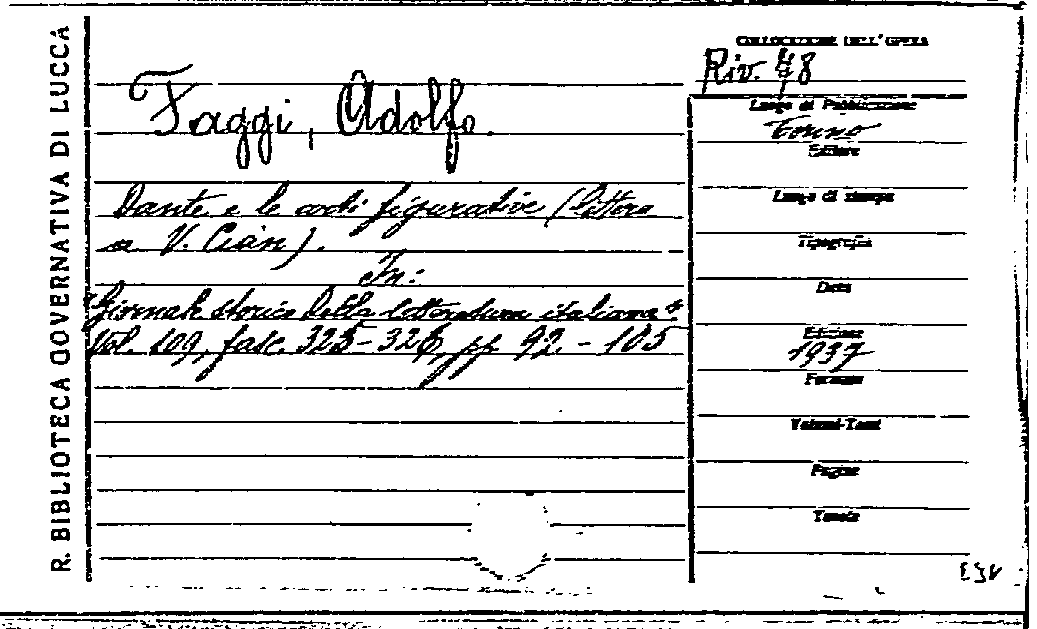 R. BIBLIOTECA GOVERNATIVA DI LUCCA
COLLOCAZIONE DELL'OPERA
Riv. 48
Faggi, Adolfo.
Dante e le arti figurative (lettera
a V. Cian).
In:
"Giornale storico della letteratura italiana"
Vol. 109, fasc. 325-326, pp. 92-105
Luogo di Pubblicazione
Torino
Editore
Luogo di stampa
Tipografia
Data
Edizione
1937
Formato
Volumi-Tomi
Pagine
Tavole